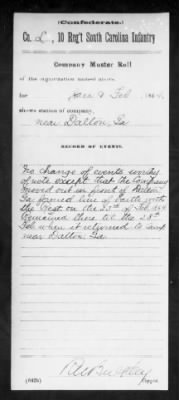 (Confederate.)
Co. L, 10 Reg't South Carolina Infantry
Company Muster Roll
of the organization named above,
for Jan & Feb, 1864.
shows station of company,
near Dalton, Ga
RECORD OF EVENTS.
No change of events worthy
of note except that the Company
moved out in front of Dalton
Ga formed line of battle with
the Regt on the 25th of Feb 1864
Remained there till the 28th
Feb when it returned to camp
near Dalton Ga
(642b)
Copyist.